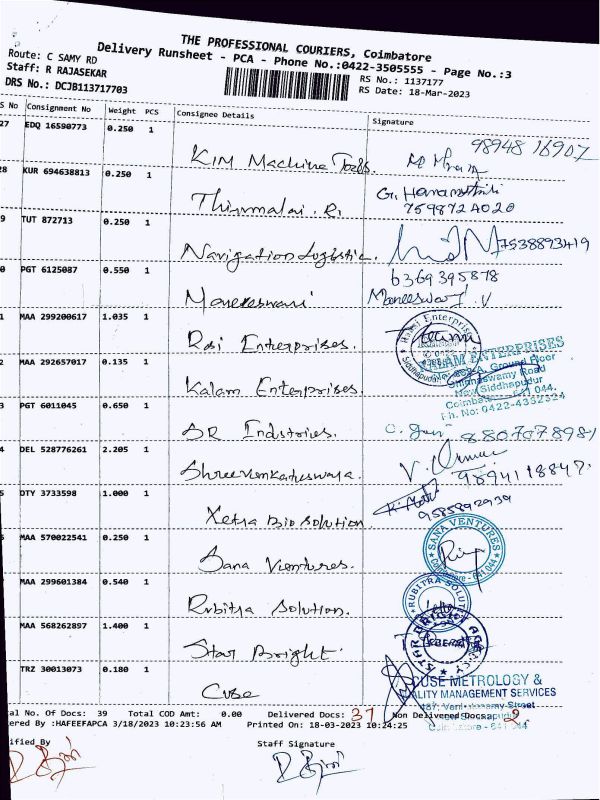 THE PROFESSIONAL COURIERS, Coimbatore
Delivery Runsheet - PCA - Phone No.:0422-3505555 - Page No.:3
Route: C SAMY RD
Staff: R RAJASEKAR
DRS No.: DCJB113717703
RS No.: 1137177
RS Date: 18-Mar-2023
S No Consignment No Weight PCS Consignee Details Signature
27 EDQ 16590773 0.250 1 KIM Machine Tools 98948 16907
28 KUR 694638813 0.250 1 Thirumalai. R. G. Hanumanthi 7598724020
9 TUT 872713 0.250 1 Navigation Logistic. 7538893419
0 PGT 6125087 0.550 1 Maneeswari 6369395878 Maneeswari. V
1 MAA 299200617 1.035 1 Rsi Enterprises. Enterprises Siddhapudur
2 MAA 292657017 0.135 1 Kalam Enterprises. KALAM ENTERPRISES
Ground Floor
Chinnaswamy Road
New Siddhapudur
Coimbatore - 641 044.
Ph. No: 0422-4352324
3 PGT 6011045 0.650 1 SR Industries. 8807078981
4 DEL 528776261 2.205 1 Shreevenkateshwara. V. 9894118847.
5 DTY 3733598 1.000 1 Xetra Bio Solution 9585892939
MAA 570022541 0.250 1 Sana Ventures. SANA VENTURES Coimbatore - 641 044
MAA 299601384 0.540 1 Rubitra Solution. RUBITRA SOLUTI
MAA 568262897 1.400 1 Star Bright. STAR BRIGHT AGENCY
TRZ 30013073 0.180 1 Cuse CUSE METROLOGY &
QUALITY MANAGEMENT SERVICES
187, Street
Coimbatore - 641 044
al No. Of Docs: 39 Total COD Amt: 0.00 Delivered Docs: 37 Non Delivered Docs: 2
ered By :HAFEEFAPCA 3/18/2023 10:23:56 AM Printed On: 18-03-2023 10:24:25
ified By Staff Signature